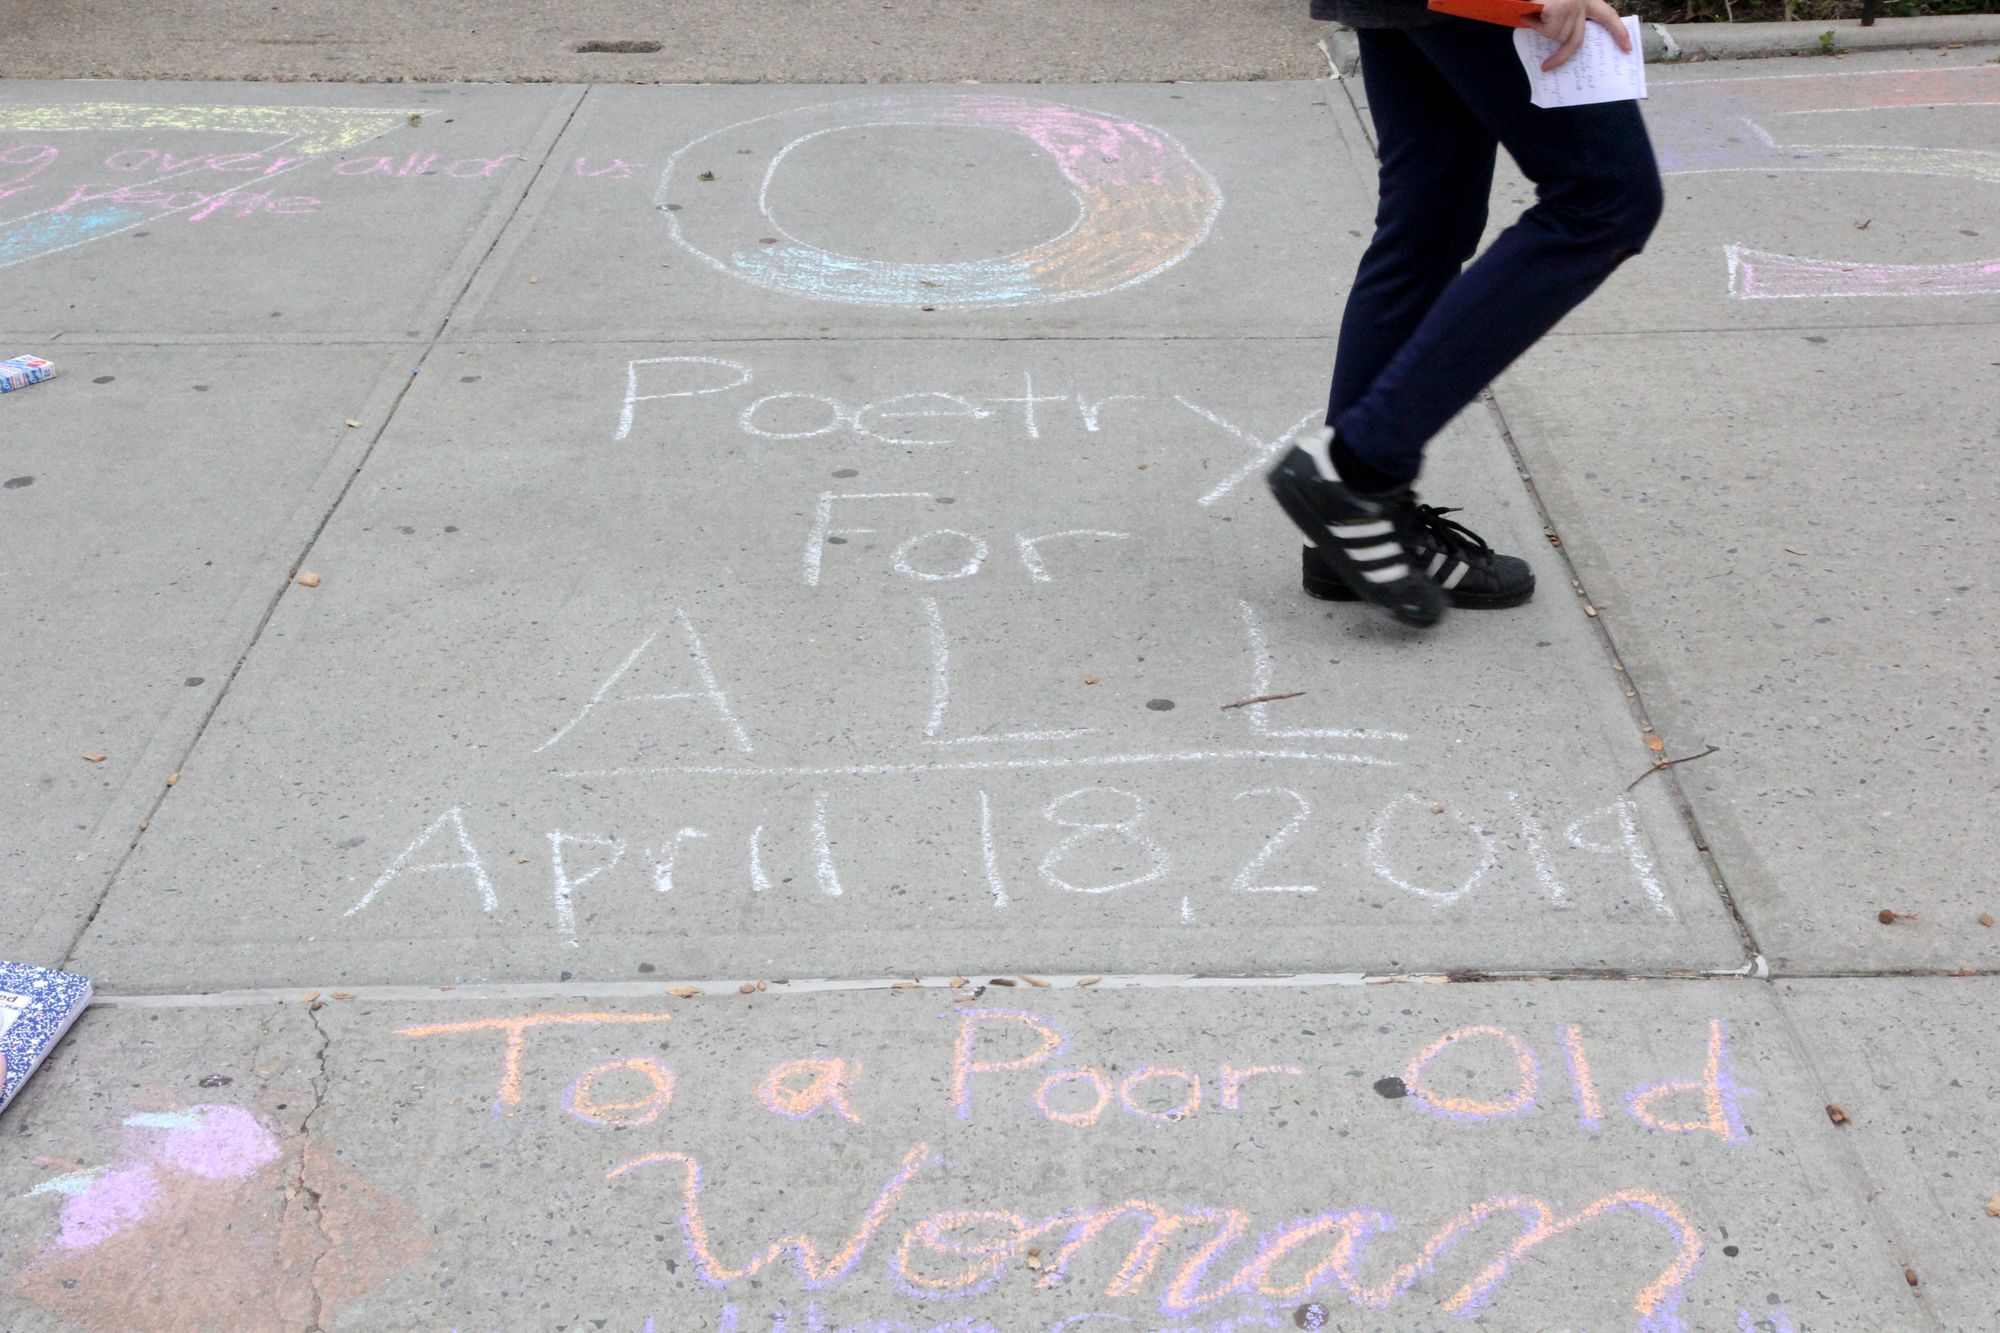 over all of us
people
Poetry
For
ALL
April 18, 2019
To a Poor Old
Woman